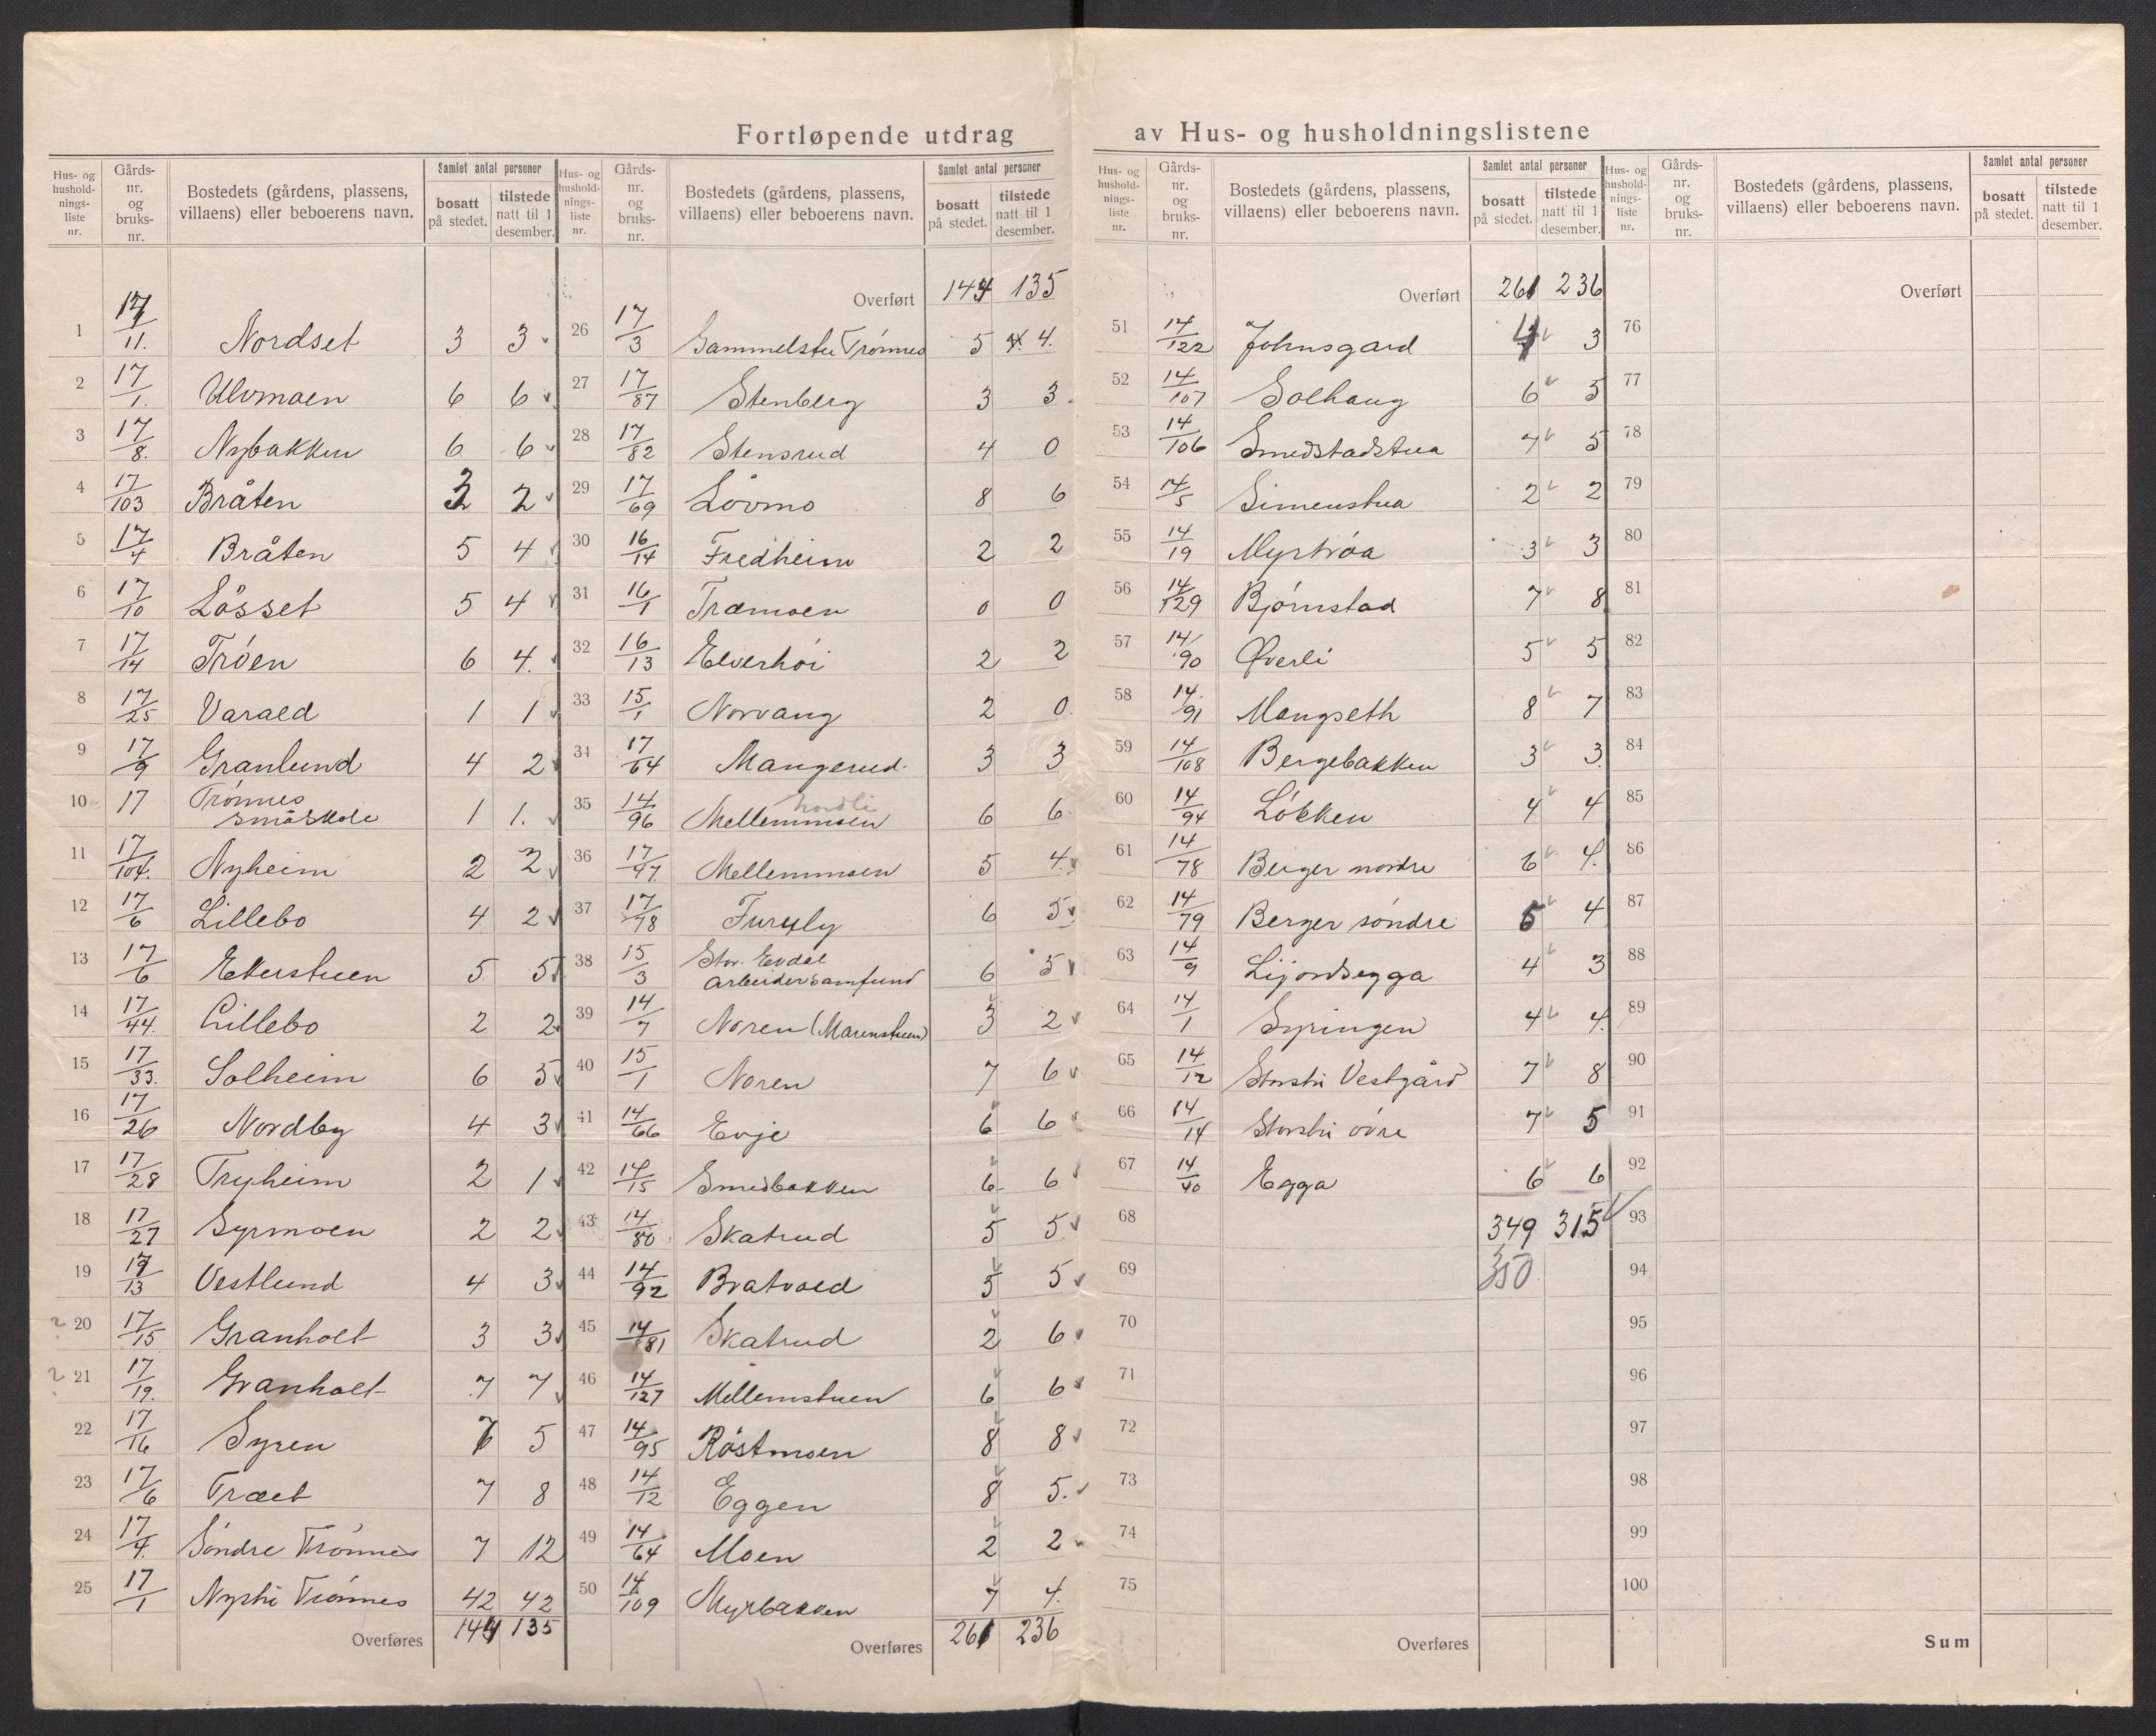 Fortløpende utdrag av Hus- og husholdningslistene
Hus- og husholdnings-liste nr. | Gårds-nr. og bruks-nr. | Bostedets (gårdens, plassens, villaens) eller beboerens navn. | Samlet antal personer | bosatt på stedet. | tilstede natt til 1 desember.
1 17/11. Nordset 3 3
2 17/1. Ulvmoen 6 6
3 17/8. Nybakken 6 6
4 17/103 Bråten 2 2
5 17/4 Bråten 5 4
6 17/10 Låsset 5 4
7 17/14 Trøen 6 4.
8 17/25 Varald 1 1
9 17/9 Granlund 4 2
10 17 Trønnes
småskole 1 1.
11 17/104. Nyheim 2 2
12 17/6 Lillebo 4 2
13 17/6 Ekerstuen 5 5
14 17/44. Lillebo 2 2
15 17/33. Solheim 6 5
16 17/26 Nordby 4 3
17 17/28 Tryheim 2 1
18 17/27 Syrmoen 2 2
19 17/13 Vestlund 4 3
20 17/15 Granholt 3 3
21 17/19. Granholt 7 7
22 17/16 Syren 5
23 17/6 Træet 7 8
24 17/4. Søndre Trønnes 7 12
25 17/1 Nystu Trønnes 42 42
Overføres 144 135
Hus- og husholdnings-liste nr. | Gårds-nr. og bruks-nr. | Bostedets (gårdens, plassens, villaens) eller beboerens navn. | Samlet antal personer | bosatt på stedet. | tilstede natt til 1 desember.
Overført 144 135
26 17/3 Gammelstu Trønnes 5 4.
27 17/87 Stenberg 3 3
28 17/82 Stensrud 4 0
29 17/69 Løvmo 8 6
30 16/14 Fredheim 2 2
31 16/1 Træmoen 0 0
32 16/13 Elverhøi 2 2
33 15/1 Norvang 2 0
34 17/64 Mangerud 3 3
35 14/96 Mellemmoen nordli 6 6
36 17/47. Mellemmoen 5 4.
37 17/78 Furuly 6 5
38 15/3 Stor. Evdal
arbeidersamfund 6 5
39 14/7 Noren (Marenstuen) 3 2
40 15/1 Noren 7 6
41 14/66 Evje 6 6
42 14/15 Smedbakken 6 6
43 14/80 Skatrud 5 5
44 14/92 Bratvold 5 5
45 14/81 Skatrud 2 6
46 14/127 Mellemstuen 6 6
47 14/95 Røstmoen 8 8
48 14/12 Eggen 8 5.
49 14/64 Moen 2 2
50 14/109 Myrbakken 7 4.
Overføres 261 236
Hus- og husholdnings-liste nr. | Gårds-nr. og bruks-nr. | Bostedets (gårdens, plassens, villaens) eller beboerens navn. | Samlet antal personer | bosatt på stedet. | tilstede natt til 1 desember.
Overført 261 236
51 14/122 Johnsgard 4 3
52 14/107 Solhaug 6 5
53 14/106 Smedstadstua 7 5
54 14/5 Simenstua 2 2
55 14/19 Myrtrøa 3 3
56 14/129 Bjørnstad 7 8
57 14/90 Øverli 5 5
58 14/91 Mangseth 8 7
59 14/108 Bergebakken 3 3
60 14/94 Løkken 4 4
61 14/78 Berger nordre 6 4.
62 14/79 Berger søndre 5 4
63 14/9 Lijordsegga 4 3
64 14/1 Syringen 4 4.
65 14/12 Storstu Vestgård 7 8
66 14/14 Storstu øvre 7 5
67 14/40 Egga 6 6
68 349 315
69 350
70
71
72
73
74
75
Overføres
Hus- og husholdnings-liste nr. | Gårds-nr. og bruks-nr. | Bostedets (gårdens, plassens, villaens) eller beboerens navn. | Samlet antal personer | bosatt på stedet. | tilstede natt til 1 desember.
Overført
76
77
78
79
80
81
82
83
84
85
86
87
88
89
90
91
92
93
94
95
96
97
98
99
100
Sum